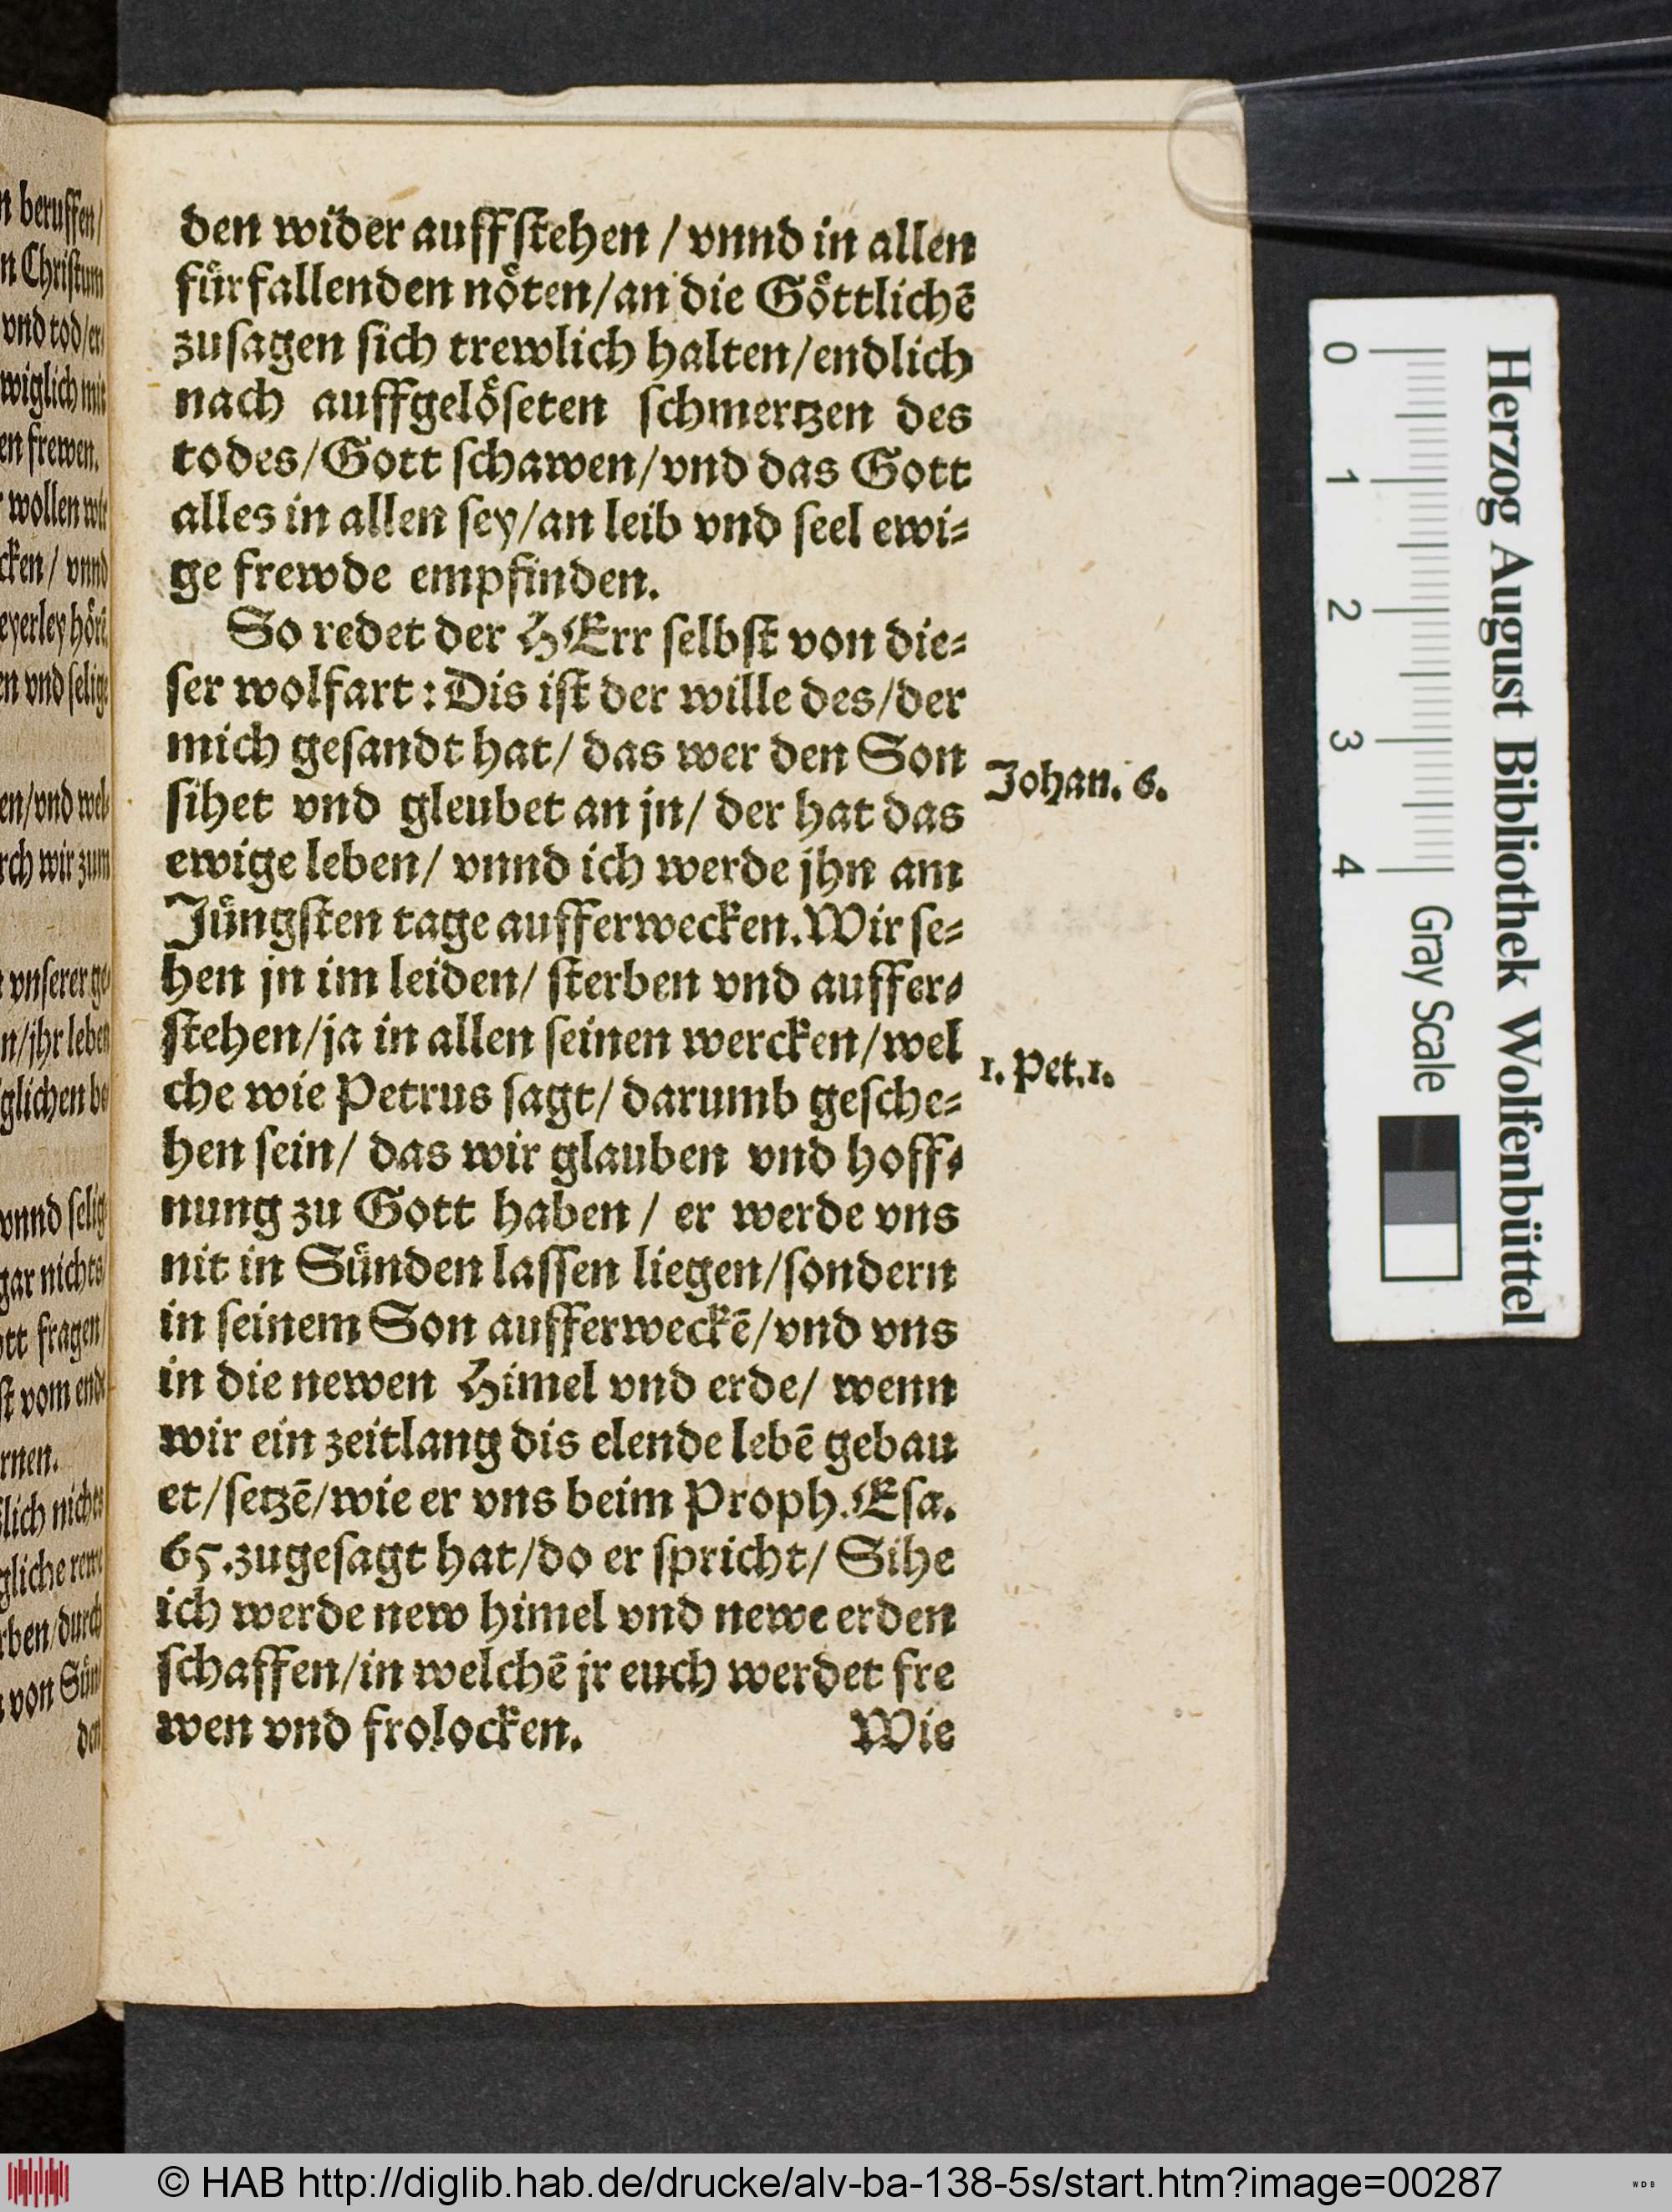 den wider auffſtehen / vnnd in allen
fuͤrfallenden noͤten/an die Goͤttlichē
zuſagen ſich trewlich halten/endlich
nach auffgeloͤſeten ſchmertzen des
todes/Gott ſchawen/vnd das Gott
alles in allen ſey/an leib vnd ſeel ewi⸗
ge frewde empfinden.
So redet der HErr ſelbſt von die⸗
ſer wolfart: Dis iſt der wille des/der
mich geſandt hat/ das wer den Son
Johan. 6.
ſihet vnd gleubet an jn/ der hat das
ewige leben/ vnnd ich werde jhn am
Juͤngſten tage aufferwecken. Wir ſe⸗
hen jn im leiden/ ſterben vnd auffer⸗
ſtehen/ja in allen ſeinen wercken/wel
1. Pet. 1.
che wie Petrus ſagt/ darumb geſche⸗
hen ſein/ das wir glauben vnd hoff⸗
nung zu Gott haben / er werde vns
nit in Suͤnden laſſen liegen/ſondern
in ſeinem Son aufferweckē/vnd vns
in die newen Himel vnd erde/ wenn
wir ein zeitlang dis elende lebē gebau
et/ſetzē/wie er vns beim Proph. Eſa.
65. zugeſagt hat/do er ſpricht/ Sihe
ich werde new himel vnd newe erden
ſchaffen/in welchē jr euch werdet fre
wen vnd frolocken. Wie
n beruffen/
n Chriſtum
vnd tod/er
wiglich mit
en frewen.
wollen wir
cken / vnnd
eyerley hoͤrē
en vnd ſelig
en/vnd wel
rch wir zum
vnſerer ge
n/jhr leben
glichen be
vnnd ſelig
gar nichts
ott fragen
ſt vom ende
rnen.
lich nichts
gliche
rben/durch
von Suͤn
den
Herzog August Bibliothek Wolfenbüttel
0 1 2 3 4 Gray Scale
© HAB http://diglib.hab.de/drucke/alv-ba-138-5s/start.htm?image=00287
WDB